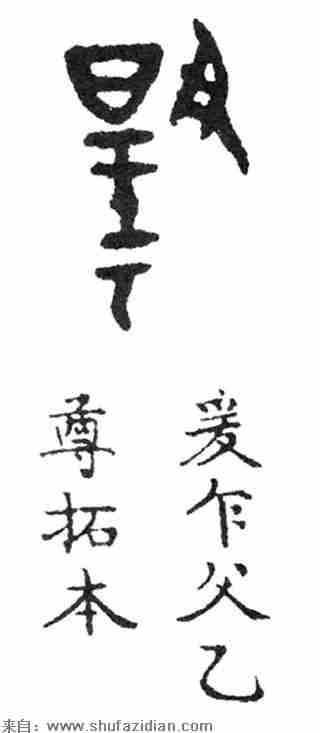 爰乍父乙
尊拓本
来自：www.shufazidian.com